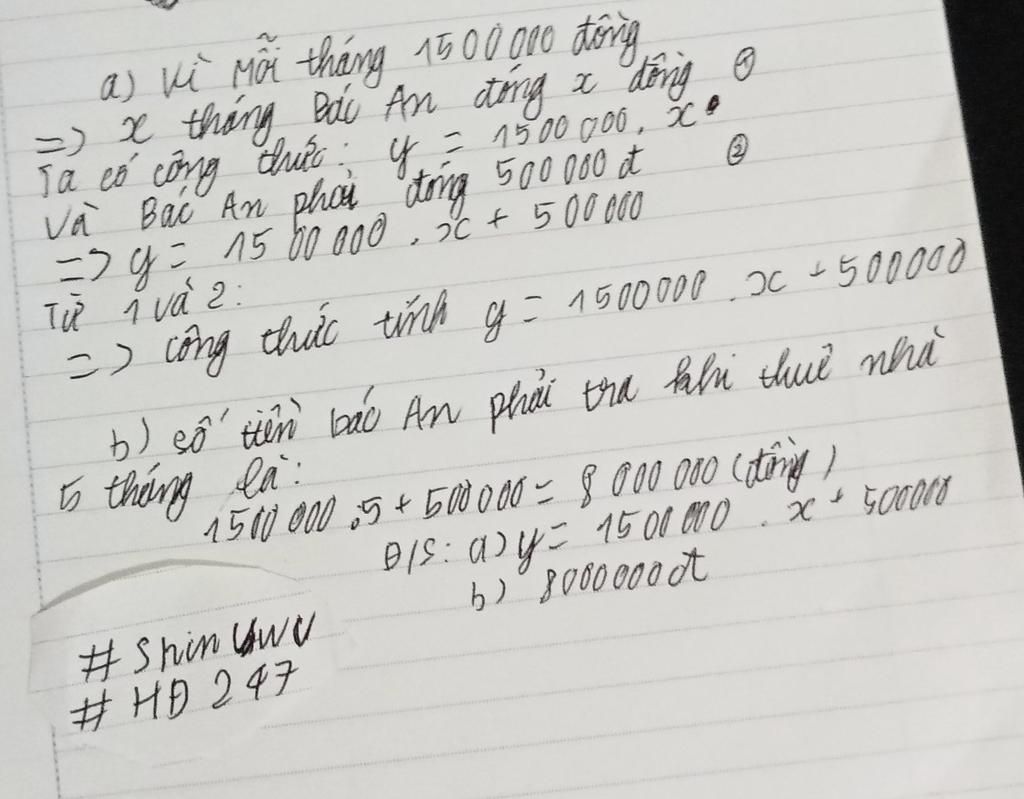 a) Vì mỗi tháng 1500000 đồng
=> x tháng Bác An đóng x đồng ①
Ta có công thức: y = 1500000. x.
Và Bác An phải đóng 500000 đ ②
=> y = 1500000 . x + 500000
Từ 1 và 2:
=> công thức tính y = 1500000 . x + 500000
b) số tiền bác An phải tra khi thuê nhà
5 tháng là:
1500000 .5 + 500000 = 8000000 (đồng)
Đ/S: a) y = 1500000 . x + 500000
b) 8000000đ
# Shin UwU
# HĐ 247